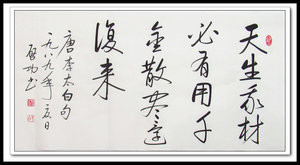 天生我材
必有用千
金散尽还
復来
唐李太白句
一九八九年夏日
启功书